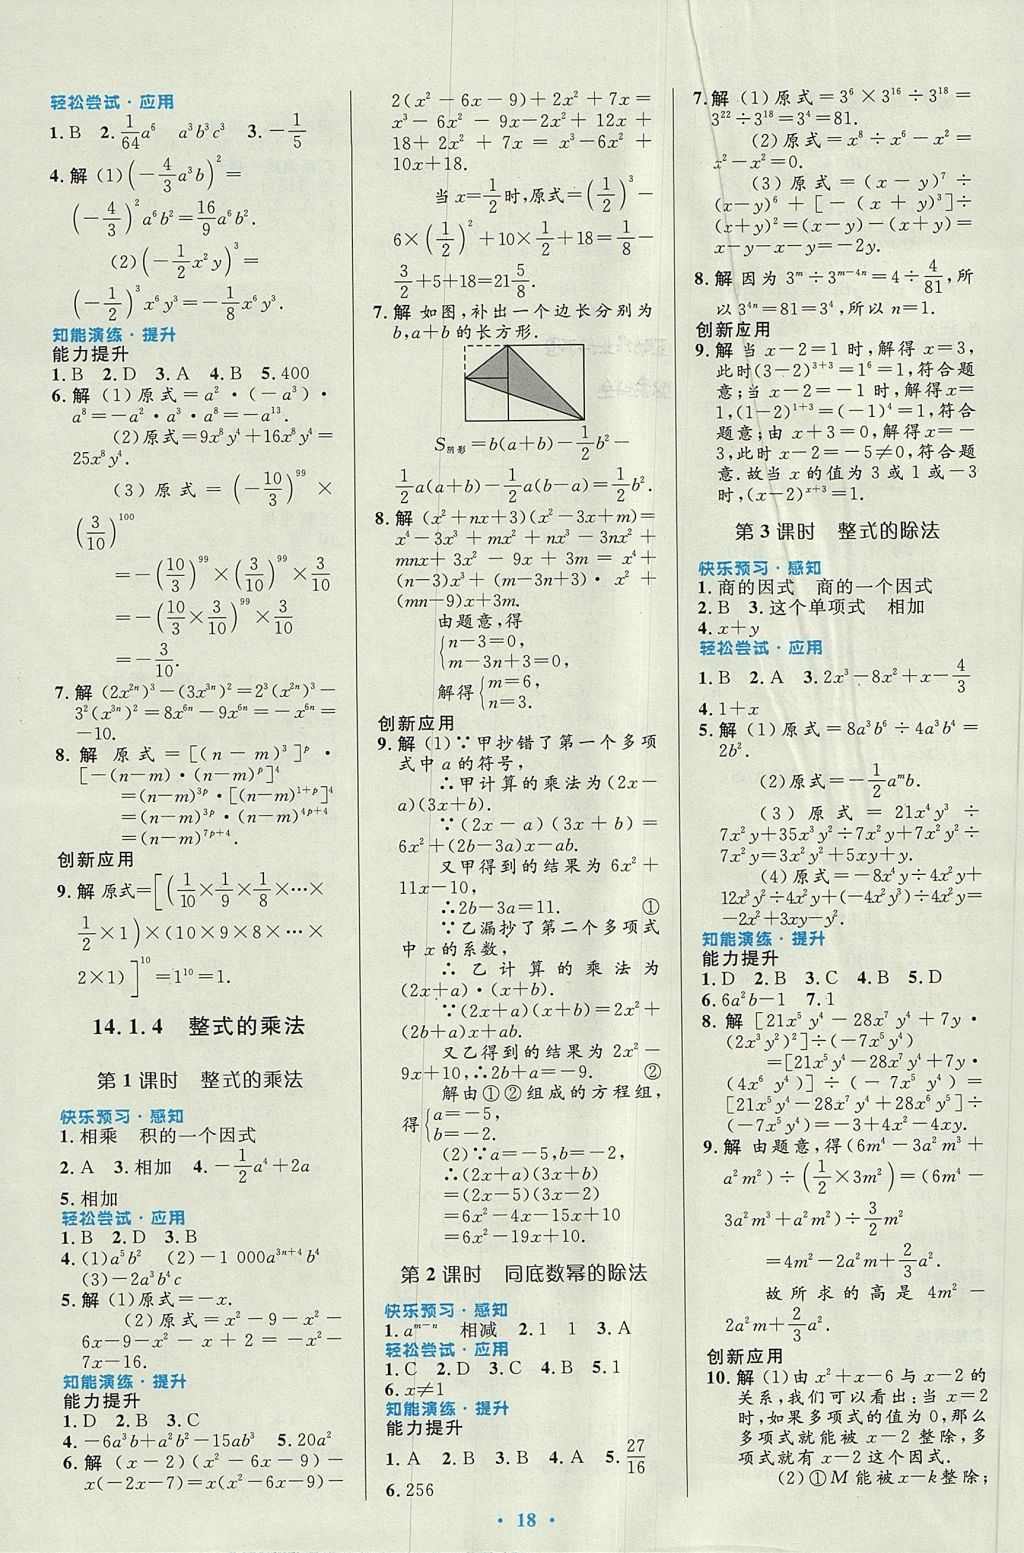 轻松尝试·应用
1.B 2.1/64a⁶ a³b³c³ 3.-1/5
4.解 (1)(-4/3a³b)²=
(-4/3)²a⁶b²=16/9a⁶b².
(2)(-1/2x²y)³=
(-1/2)³x⁶y³=-1/8x⁶y³.
知能演练·提升
能力提升
1.B 2.D 3.A 4.B 5.400
6.解 (1)原式=a²·(-a³)·
a⁸=-a²·a³·a⁸=-a¹³.
(2)原式=9x⁸y⁴+16x⁸y⁴=
25x⁸y⁴.
(3)原式=(-10/3)⁹⁹×
(3/10)¹⁰⁰
=-(10/3)⁹⁹×(3/10)⁹⁹×3/10
=-(10/3×3/10)⁹⁹×3/10
=-3/10.
7.解 (2x²ⁿ)³-(3x³ⁿ)²=2³(x²ⁿ)³-
3²(x³ⁿ)²=8x⁶ⁿ-9x⁶ⁿ=-x⁶ⁿ=
-10.
8.解 原式=[(n-m)³]ᵖ·
[-(n-m)·(n-m)ᵖ]⁴
=(n-m)³ᵖ·[(n-m)¹⁺ᵖ]⁴
=(n-m)³ᵖ·(n-m)⁴ᵖ⁺⁴
=(n-m)⁷ᵖ⁺⁴.
创新应用
9.解 原式=[(1/10×1/9×1/8×…×
1/2×1)×(10×9×8×…×
2×1)]¹⁰=1¹⁰=1.
14.1.4 整式的乘法
第1课时 整式的乘法
快乐预习·感知
1.相乘 积的一个因式
2.A 3.相加 4.-1/2a⁴+2a
5.相加
轻松尝试·应用
1.B 2.D 3.B
4.(1)a⁵b² (2)-1 000a³ⁿ⁺⁴b⁴
(3)-2a³b⁴c
5.解 (1)原式=-x.
(2)原式=x²-9-x²-
6x-9-x²-x+2=-x²-
7x-16.
知能演练·提升
能力提升
1.D 2.B 3.C
4.-6a³b+a²b²-15ab³ 5.20a²
6.解 (x-2)(x²-6x-9)-
x(-2x-7)=x(x²-6x-9)-
2(x²-6x-9)+2x²+7x=
x³-6x²-9x-2x²+12x+
18+2x²+7x=x³-6x²+
10x+18.
当x=1/2时,原式=(1/2)³-
6×(1/2)²+10×1/2+18=1/8-
3/2+5+18=21 5/8.
7.解 如图,补出一个边长分别为
b,a+b的长方形.
S阴影=b(a+b)-1/2b²-
1/2a(a+b)-1/2a(b-a)=1/2b².
8.解 (x²+nx+3)(x²-3x+m)=
x⁴-3x³+mx²+nx³-3nx²+
mnx+3x²-9x+3m=x⁴+
(n-3)x³+(m-3n+3)·x²+
(mn-9)x+3m.
由题意,得
{n-3=0,
m-3n+3=0,
解得{m=6,
n=3.
创新应用
9.解 (1)∵甲抄错了第一个多项
式中a的符号,
∴甲计算的乘法为(2x-
a)(3x+b).
∵(2x-a)(3x+b)=
6x²+(2b-3a)x-ab.
又甲得到的结果为6x²+
11x-10,
∴2b-3a=11. ①
∵乙漏抄了第二个多项式
中x的系数,
∴乙计算的乘法为
(2x+a)·(x+b).
∵(2x+a)(x+b)=2x²+
(2b+a)x+ab.
又乙得到的结果为2x²-
9x+10,∴2b+a=-9. ②
解由①②组成的方程组,
得{a=-5,
b=-2.
(2)∵a=-5,b=-2,
∴(2x+a)(3x+b)
=(2x-5)(3x-2)
=6x²-4x-15x+10
=6x²-19x+10.
第2课时 同底数幂的除法
快乐预习·感知
1.aᵐ⁻ⁿ 相减 2.1 1 3.A
轻松尝试·应用
1.C 2.D 3.C 4.B 5.1
6.x≠1
知能演练·提升
能力提升
1.A 2.B 3.B 4.A 5.27/16
6.256
7.解 (1)原式=3⁶×3¹⁶÷3¹⁸=
3²²÷3¹⁸=3⁴=81.
(2)原式=x⁸÷x⁶-x²=
x²-x²=0.
(3)原式=(x-y)⁷÷
(x-y)⁶+[-(x+y)³]÷
(x+y)²=(x-y)-(x+y)=
x-y-x-y=-2y.
8.解 因为3ᵐ÷3ᵐ⁻⁴ⁿ=4÷4/81,所
以3⁴ⁿ=81=3⁴,所以n=1.
创新应用
9.解 当x-2=1时,解得x=3,
此时(3-2)³⁺³=1⁶=1,符合题
意;当x-2=-1时,解得x=
1,(1-2)¹⁺³=(-1)⁴=1,符合
题意;由x+3=0,解得x=-
3,此时x-2=-5≠0,符合题
意.故当x的值为3或1或-3
时,(x-2)ˣ⁺³=1.
第3课时 整式的除法
快乐预习·感知
1.商的因式 商的一个因式
2.B 3.这个单项式 相加
4.x+y
轻松尝试·应用
1.B 2.A 3.2x³-8x²+x-4/3
4.1+x
5.解 (1)原式=8a³b⁶÷4a³b⁴=
2b².
(2)原式=-1/2aᵐb.
(3)原式=21x⁴y³÷
7x²y+35x³y²÷7x²y+7x²y²÷
7x²y=3x²y²+5xy+y.
(4)原式=-8x⁴y÷4x²y+
12x³y²÷4x²y+(-4x²y³)÷4x²y=
-2x²+3xy-y².
知能演练·提升
能力提升
1.D 2.B 3.C 4.B 5.D
6.6a²b-1 7.1
8.解 [21x⁵y⁴-28x⁷y⁴+7y·
(2x³y²)²]÷(-7x⁵y⁴)
=[21x⁵y⁴-28x⁷y⁴+7y·
(4x⁶y⁴)]÷(-7x⁵y⁴)=
[21x⁵y⁴-28x⁷y⁴+28x⁶y⁵]÷
(-7x⁵y⁴)=-3+4x²-4xy.
9.解 由题意,得(6m⁴-3a²m³+
a²m²)÷(1/2×3m²)=(6m⁴-
3a²m³+a²m²)÷3/2m²
=4m²-2a²m+2/3a².
故所求的高是4m²-
2a²m+2/3a².
创新应用
10.解 (1)由x²+x-6与x-2的
关系,我们可以看出:当x=2
时,如果多项式的值为0,那么
多项式就能被x-2整除,多
项式就有x-2这个因式.
(2)①M能被x-k整除;
·18·